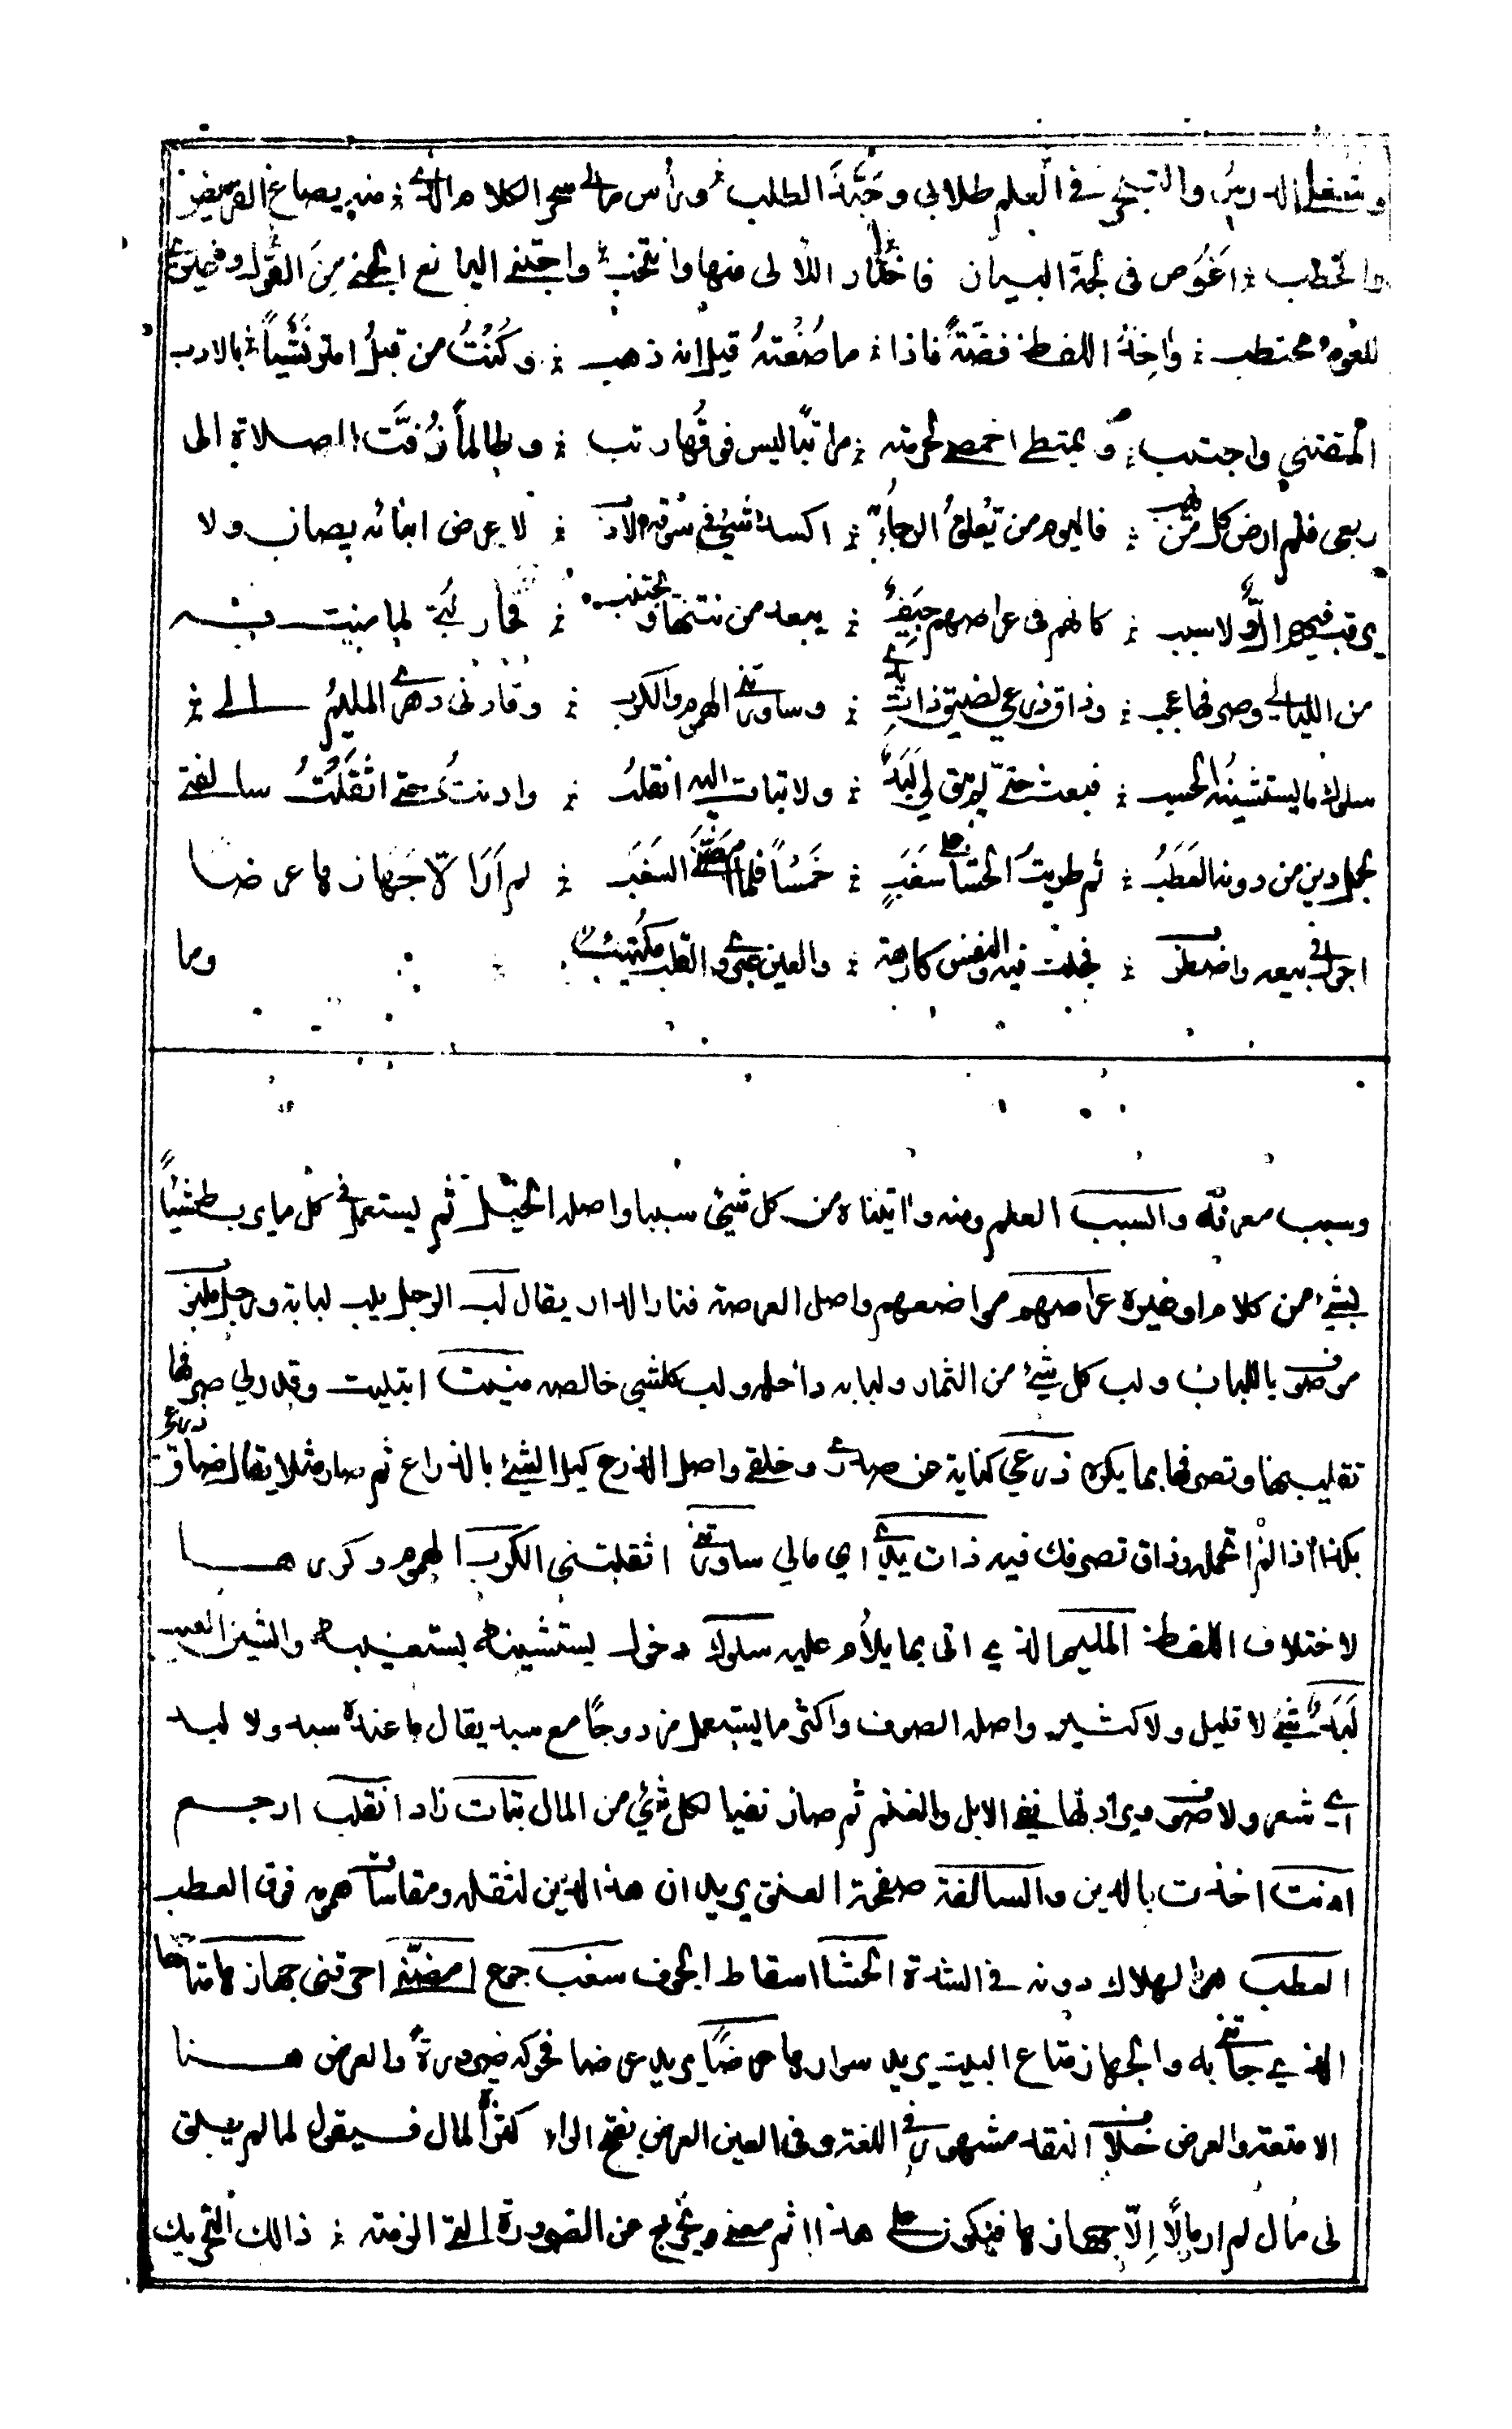 وشغلي الدرس والتبحر في العلم طلابي وحبذا الطلب ؛ ورأس مالي سحر الكلام الذي ؛ منه يصاغ القريض
والخطب ؛ اغوص في لجة البيان فاختار اللآلي منها وانتخب ؛ واجتني اليانع الجني من القول وغيري
للعود محتطب ؛ واخذ اللفظ فضة فاذا ؛ ما صغته قيل انه ذهب ؛ وكنت من قبل امتري نشباً ؛ بالادب
المقتنى واجتلب ؛ ويمتطي اخمصي لحرمته ؛ مراتباً ليس فوقها رتب ؛ وطالما زفت الصلاة الى
ربعي فلم ارض كل من يهب ؛ فاليوم من يعلق الرجاء به ؛ اكسد شيء في سوقه الادب ؛ لا عرض ابنائه يصان ولا
يرقب فيهم إلٌّ ولا سبب ؛ كانهم في عراصهم جيف ؛ يبعد من نتنها ويجتنب ؛ فحار لبي لما منيت به
من الليالي وصرفها عجب ؛ وذاق ذرعي لضيق ذات يدي ؛ وساورتني الهموم والكرب ؛ وقادني دهري المليم الى ؛
سلوك ما يستشينه الحسب ؛ فبعت حتى لم يبق لي لبد ؛ ولا بتات اليه انقلب ؛ وادنت حتى اثقلت سالفتي
بحمل دين من دونه العطب ؛ ثم طويت الحشا على سغب ؛ خمساً فلما امضني السغب ؛ لم ار الا جهازها عرضا
اجول في بيعه واضطرب ؛ فجلت فيه والنفس كارهة ؛ والعين عبرى والقلب مكتئب ؛ وما
وسبب معرفة والسبب العلم ومنه وآتيناه من كل شيئ سببا واصله الحبل ثم يستعمل في كل ما يربط شيئاً
بشيء من كلام او غيره عراصهم مواضعهم واصل العرصة فناء الدار يقال لب الرجل يلب لبابة ورجل ملبوب
موصوف باللباب ولب كل شيئ من الثمار ولبابه داخله ولب كلشيئ خالصه منيت ابتليت وقدر لي صرفها
تقليبها وتصرفها بما يكره ذرعي كناية عن صدري وخلقي واصل الذرع كيل الشيئ بالذراع ثم صار مثلا يقال ضاق ذرعي
بكذا اذا لم احمله وذاق تصرفك فيه ذات يدي اي مالي ساورتني اثقلتني الكرب الهموم وكررها
لاختلاف اللفظ المليم الذي اتى بما يلام عليه سلوك دخول يستشينه يستعيبه والشين العيب
لبد شيئ لا قليل ولا كثير واصله الصوف واكثر ما يستعمل مزدوجاً مع سبد يقال ما عنده سبد ولا لبد
اي شعر ولا صوف ويراد بها نفي الابل والغنم ثم صار نفيا لكل شيئ من المال بتات زاد انقلب ارجع
ادنت اخذت بالدين والسالفة صفحة العنق يريد ان هذا الدين لثقله ومقاسات همومه فوق العطب
العطب هو الهلاك دونه في الشدة الحشا اسقاط الجوف سغب جوع امضني احرقني جهازها متاعها
الذي جاءتني به والجهاز متاع البيت يريد سوارها عرضاً يريد عرضا فحركه ضرورةً والعرض هنا
الامتعة والعرض خلاف النقد مشهور في اللغة وفي العين العرض بفتح الراء كثرة المال فسيقول لما لم يبق
لي مال لم ار مالاً إلّا جهازها فيكون على هذا اثم معنى ويخرج عن الضرورة التي الزمته ؛ ذالك التحريك